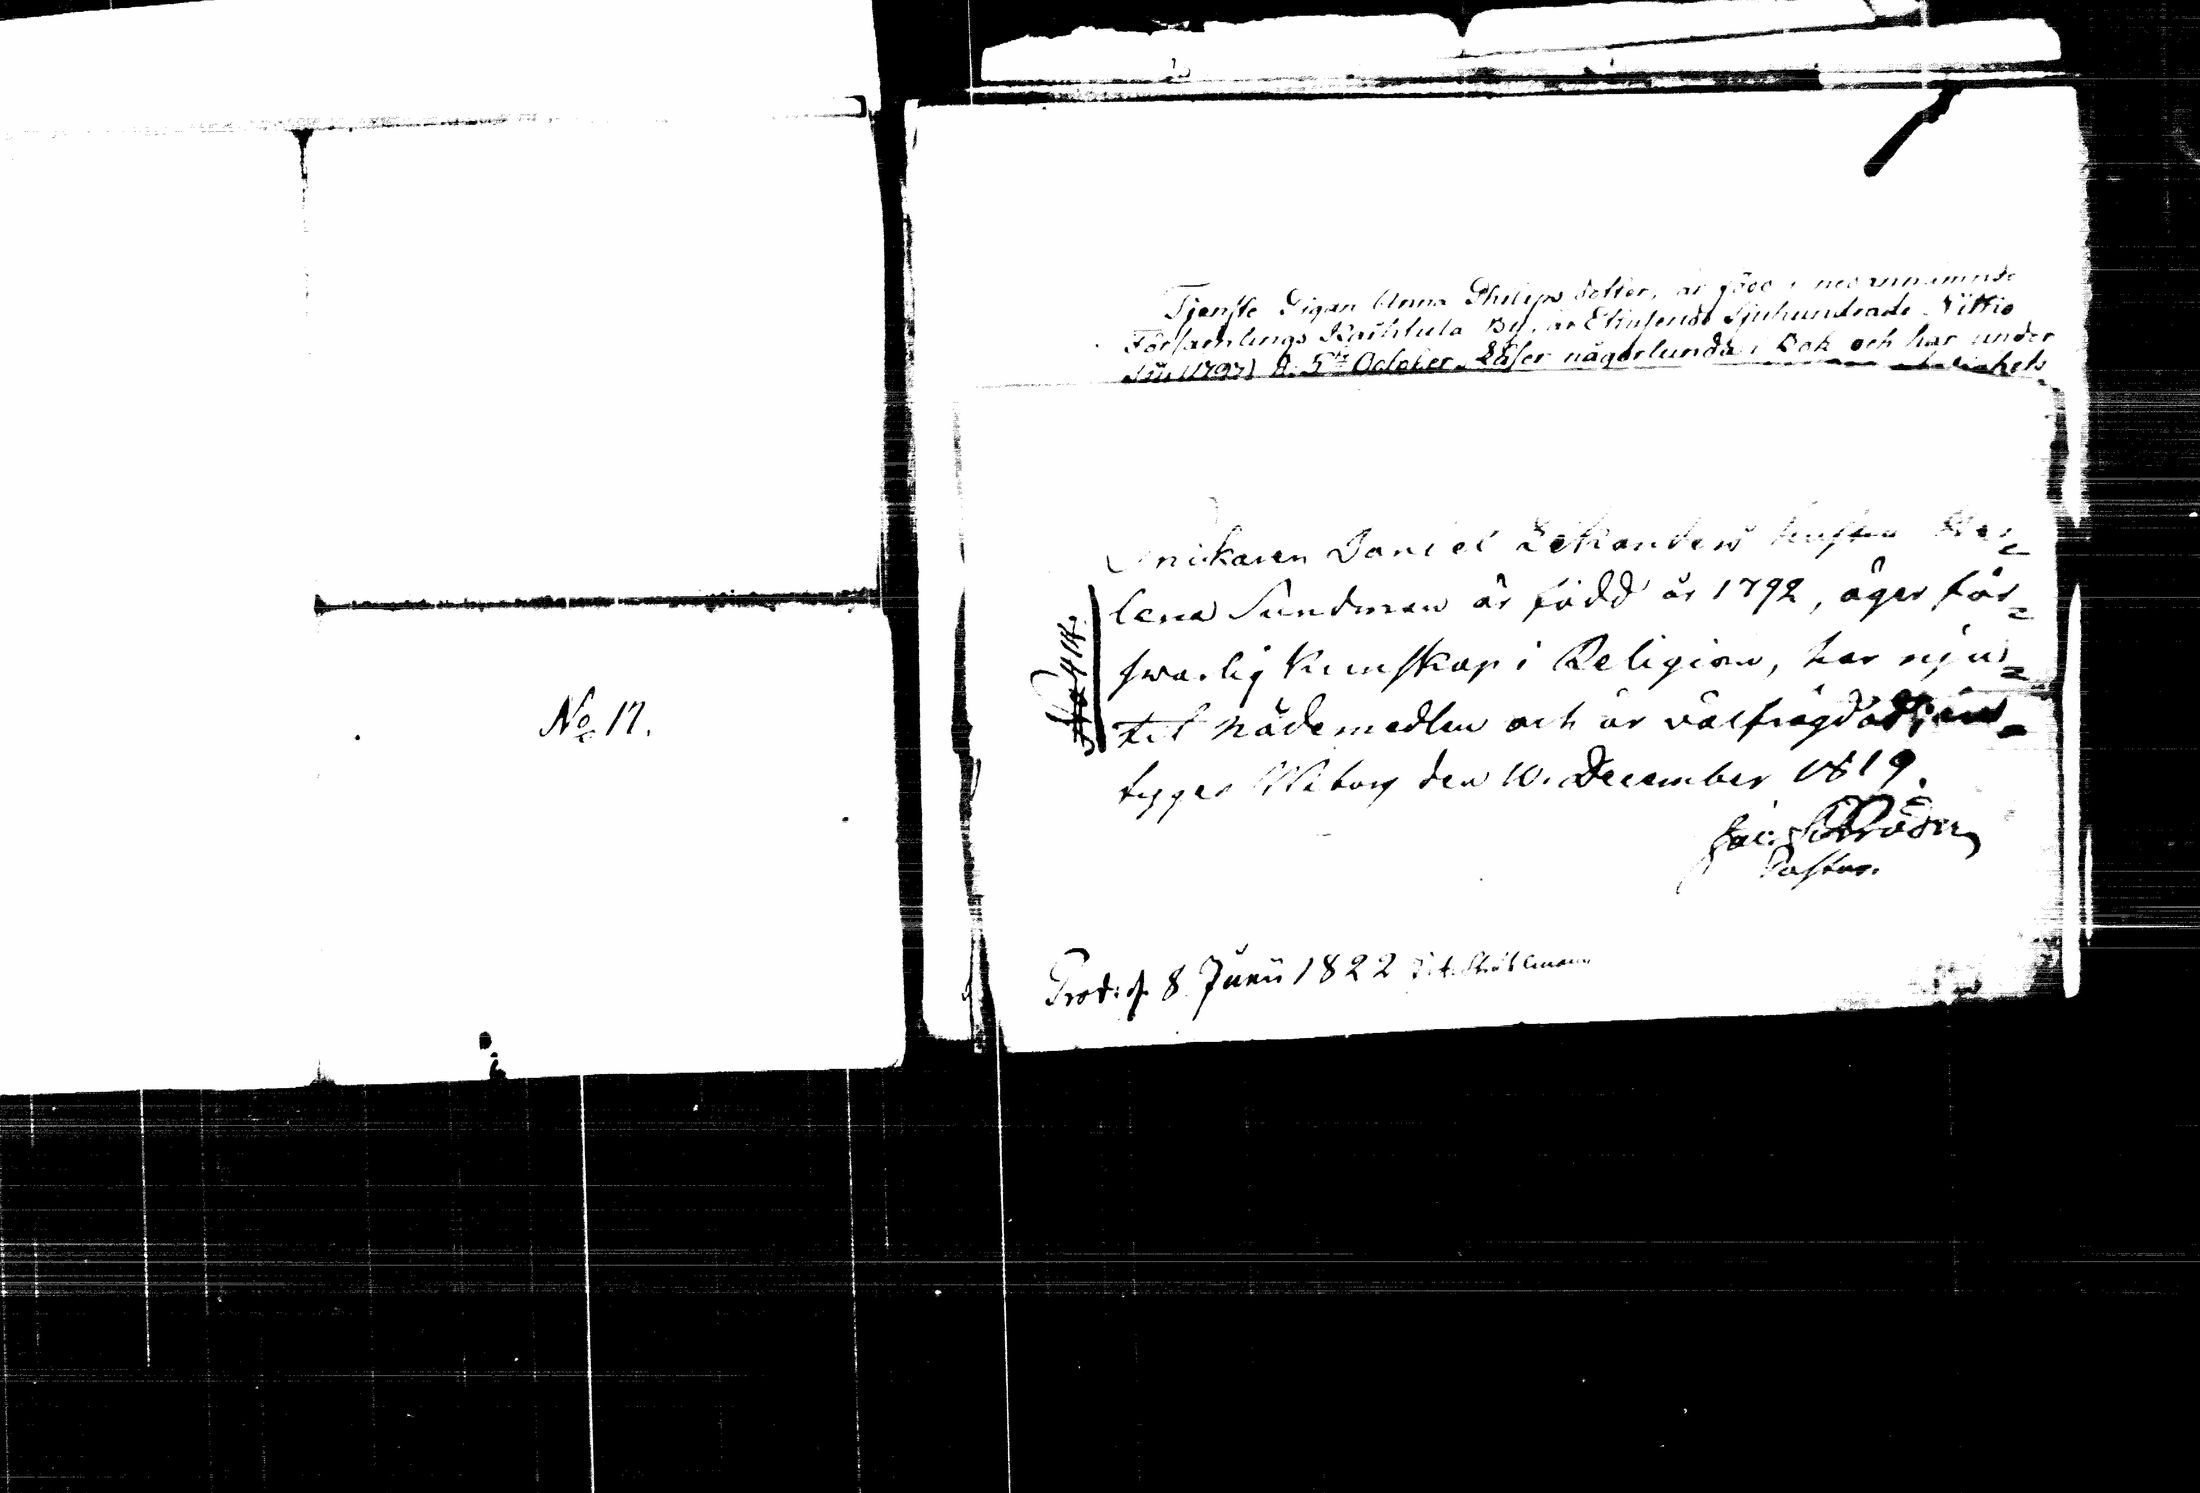 No 17.
Tjenste Pigan Anna Philips dotter, är född i nedannämnde
Församlings By, år Ettusende Sjuhundrade Nittio
Sju (1797) d. 5te October. Läser någorlunda i Bok och har under
Snickaren Daniel Hustru He=
lena Sundman är född år 1792, äger för=
swarlig kunskap i Religion, har nju=
tit nådemedlen och är välfrägdad;
tygar Wiborg den 10. December 1819.
Pastor.
No 414.
Prod. d. 8 Junii 1822